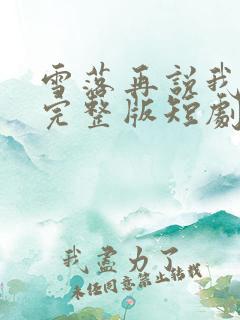 雪落再說我
完整版短劇
我盡力了
未经同意禁止转载